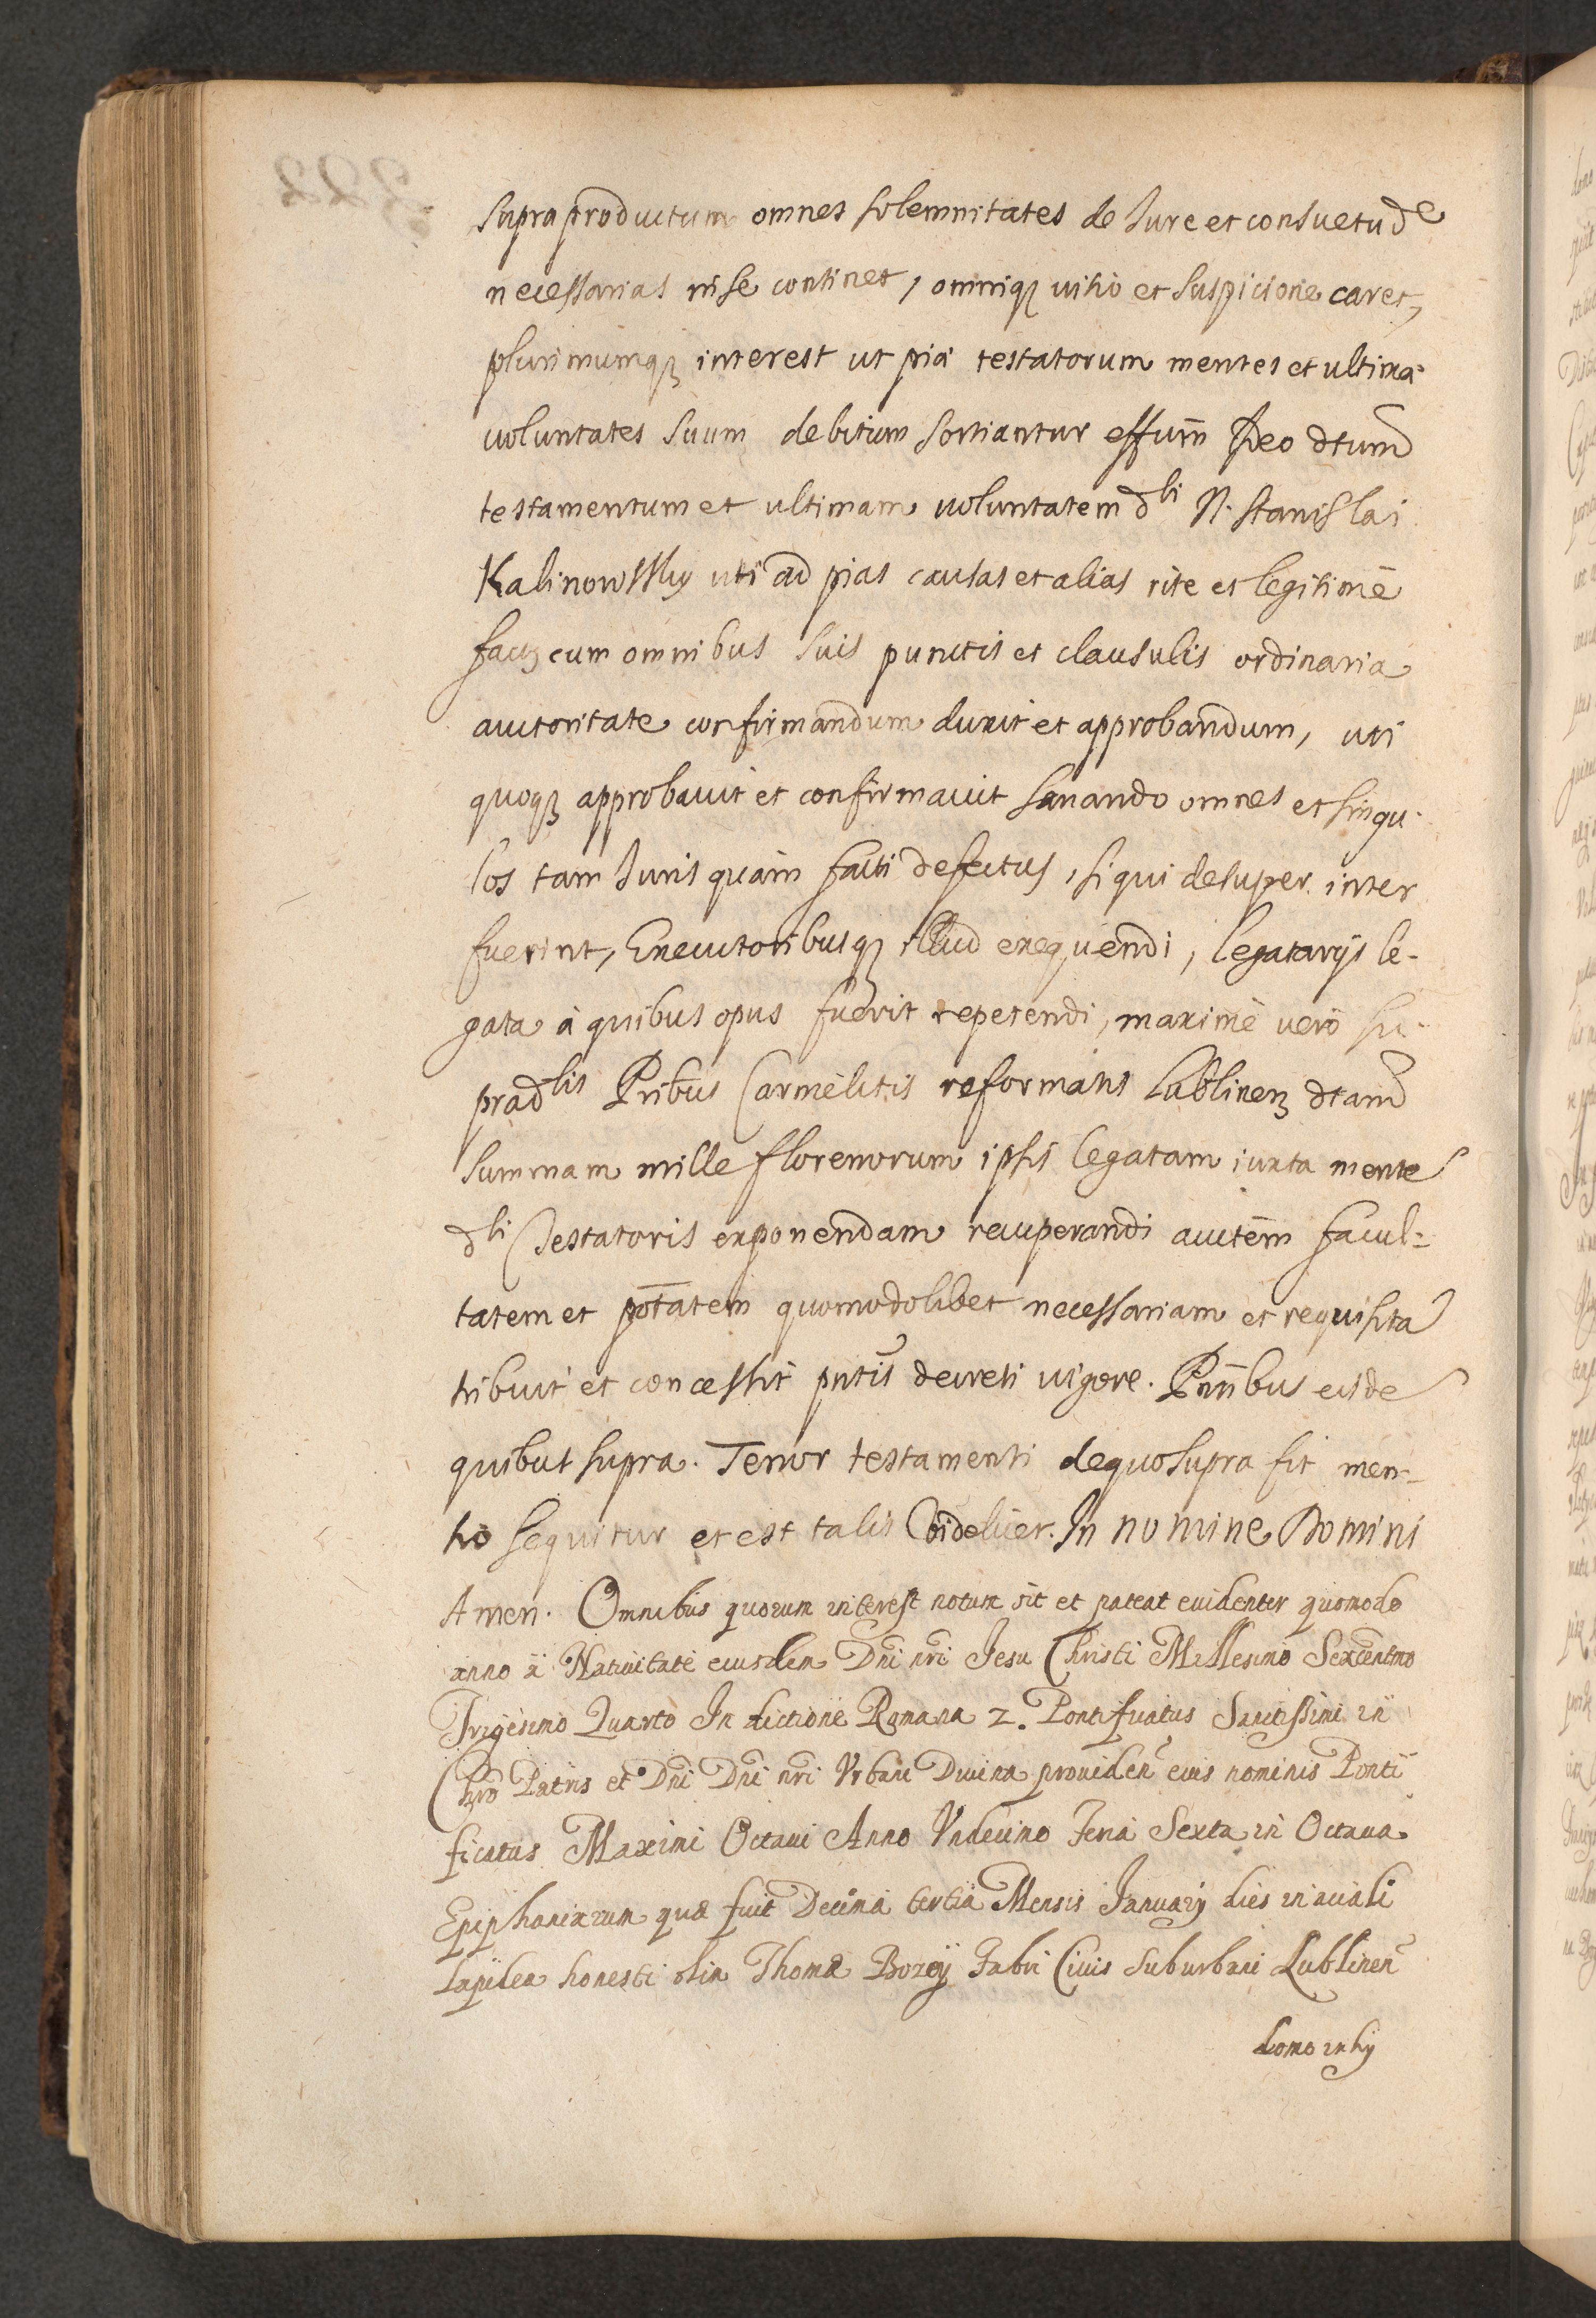 supraproductum omnes solemnitates de Jure et consuetud^e
necessarias in se continet, omniq₃ vitio et suspicione caret,
plurimumq₃ interest ut piæ testatorum mentes et ultimæ
voluntates suum debitum sortiantur effum̄ Ideo dtum
testamentum et ultimam voluntatem d^ti N. Stanislai
Kalinowsky uti ad pias causas et alias rite et legitimè
fact₃ cum omnibus suis punctis et clausulis ordinaria
auctoritate confirmandum duxit et approbandum, uti
quoq₃ approbavit et confirmavit sanando omnes et singu-
los tam Juris quàm facti defectus, si qui desuper inter
fuerint, Executoribusq₃ illud exequendi, legatarijs le-
gata à quibus opus fuerit repetendi, maximè verò su-
prad^tis Pribus Carmelitis reformatis Lublinen₃ dtam
summam mille florenorum ipsis legatam iuxta mente
d^ti Testatoris exponendam recuperandi auctem̄ facul-
tatem et potatem quomodolibet necessariam et requisita
tribuit et concessit pntis decreti vigore. Pntibus eisde
quibus supra. Tenor testamenti de quo supra fit men-
tio sequitur et est talis videlicet. In nomine Domini
Amen. Omnibus quorum interest notum sit et pateat evidenter quomodo
anno à Nativitate eiusdem Dni nri Jesu Christi Millesimo Sexcentmo
Trigesimo Quarto In dictione Romana 2. Pontificatus Sanctissimi in
Chro Patris et Dni Dni nri Urbani Divina providen eius nominis Ponti
ficatus Maximi Octavi Anno Undecimo Feria Sexta in Octava
Epiphaniarum quæ fuit Decima tertia Mensis Januarij dies in aciali
lapidea honesti olim Thomæ Fabri Civis Suburbani Lublinen
domo in hy